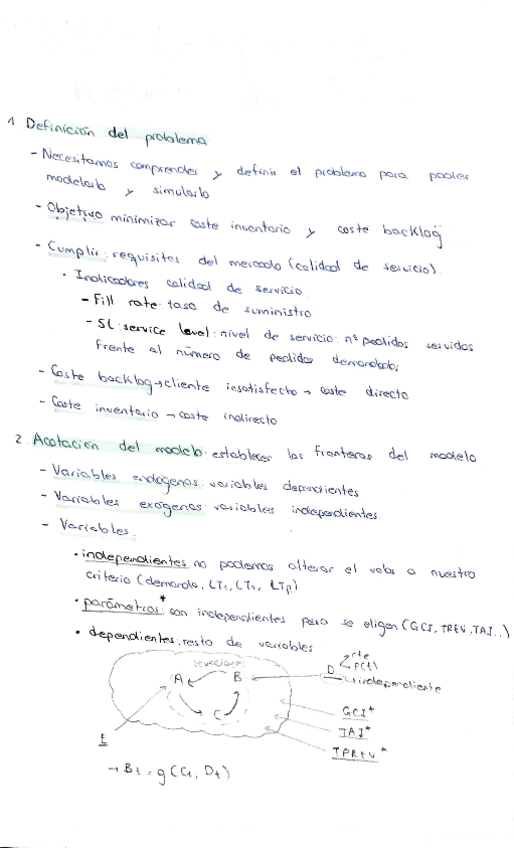 1 Definición del problema
- Necesitamos comprender y definir el problema para poder
modelarlo y simularlo
- Objetivo minimizar coste inventario y coste backlog
- Cumplir: requisitos del mercado (calidad de servicio).
• Indicadores calidad de servicio
- Fill rate: tasa de suministro
- SL: service level: nivel de servicio: nº pedidos servidos
frente al número de pedidos demandados
- Coste backlog → cliente insatisfecho → coste directo
- Coste inventario → coste indirecto
2. Acotación del modelo: establecer las fronteras del modelo
- Variables endógenas: variables dependientes
- Variables exógenas: variables independientes
- Variables:
• independientes no podemos alterar el valor a nuestro
criterio (demanda, LT
• parámetros*: son independientes pero se eligen (GCI, TREV, TAI..)
• dependientes: resto de variables
Ecuaciones
cte
A B D f(t)
independiente
C
GCI*
TAI*
E
TPREV*
→ Bt = g(Ct, Dt)